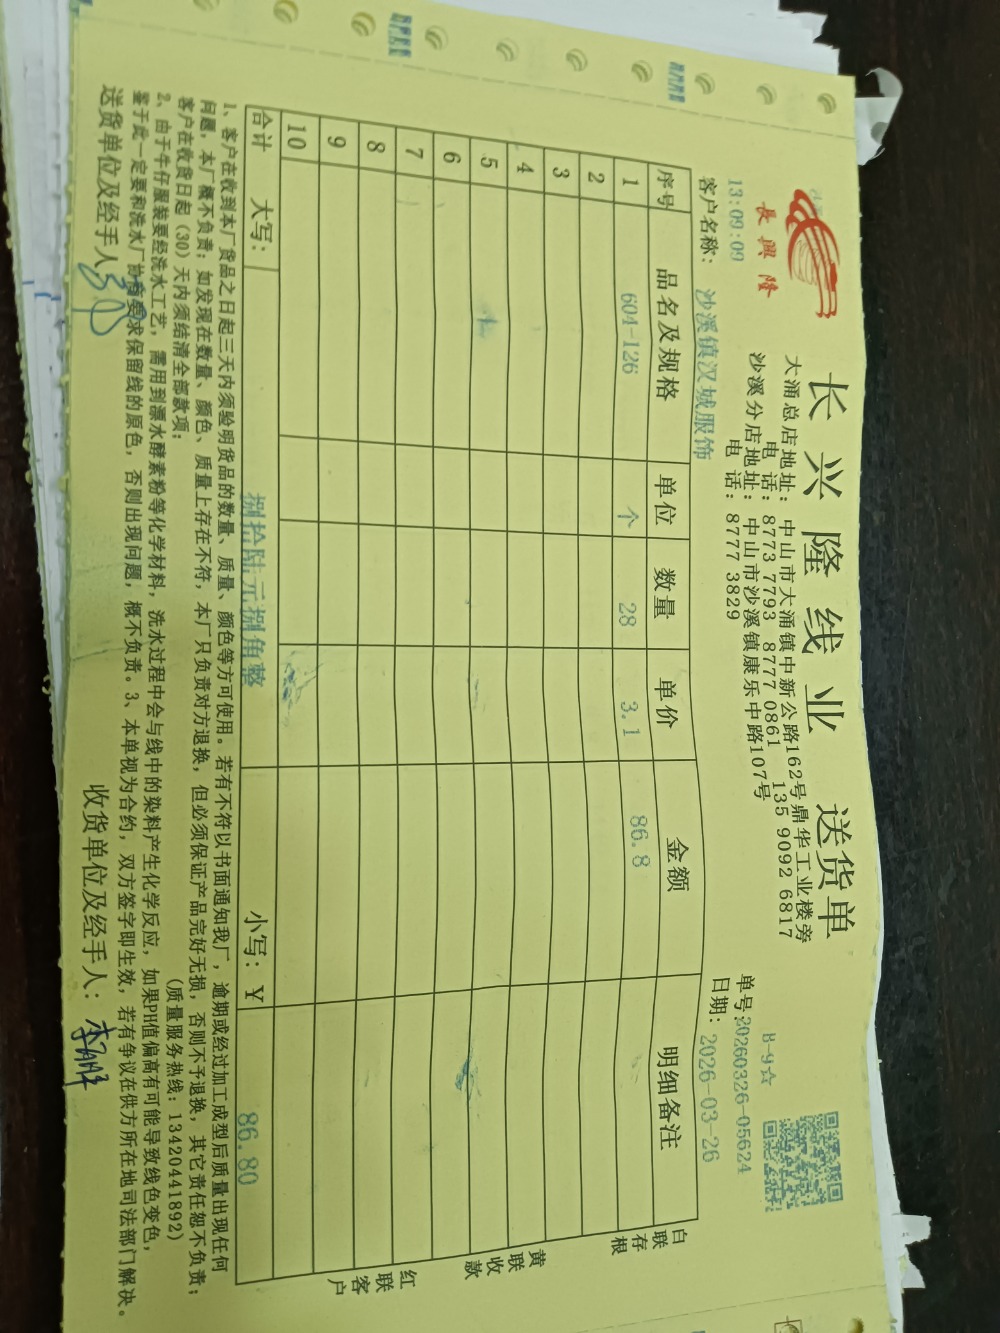 長興隆
长兴隆线业 送货单
大涌总店地址: 中山市大涌镇中新公路162号鼎华工业楼旁
电 话: 8773 7793 8777 0861 135 9092 6817
沙溪分店地址: 中山市沙溪镇康乐中路107号
电 话: 8777 3829
B-9☆
单号:20260326-05624
13:09:09
日期: 2026-03-26
客户名称: 沙溪镇汉城服饰
序号 品名及规格 单位 数量 单价 金额 明细备注
1 604-126 个 28 3.1 86.8
2
3
4
5
6
7
8
9
10
合计 大写: 捌拾陆元捌角整 小写: ¥ 86.80
白联存根
黄联收款
红联客户
1、客户在收到本厂货品之日起三天内须验明货品的数量、质量、颜色等方可使用。若有不符以书面通知我厂,逾期或经过加工成型后质量出现任何
问题,本厂概不负责;如发现在数量、颜色、质量上存在不符,本厂只负责对方退换,但必须保证产品完好无损,否则不予退换,其它责任恕不负责;
客户在收货日起(30)天内须结清全部款项; (质量服务热线:13420441892)
2、由于牛仔服装要经洗水工艺,需用到漂水酵素粉等化学材料,洗水过程中会与线中的染料产生化学反应,如果PH值偏高有可能导致线色变色,
鉴于此一定要和洗水厂协商要求保留线的原色,否则出现问题,概不负责。3、本单视为合约,双方签字即生效,若有争议在供方所在地司法部门解决。
送货单位及经手人: 收货单位及经手人: